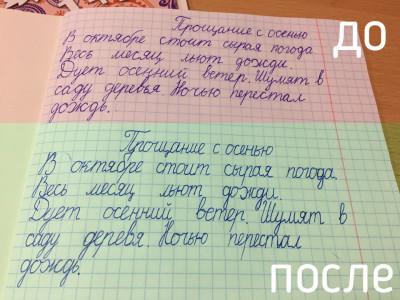 до
Прощание с осенью
В октябре стоит сырая погода
Весь месяц льют дожди.
Дует осенний ветер. Шумят в
саду деревья Ночью перестал
дождь.
Прощание с осенью
В октябре стоит сырая погода.
Весь месяц льют дожди.
Дует осенний ветер. Шумят в
саду деревя. Ночью перестал
дождь.
после